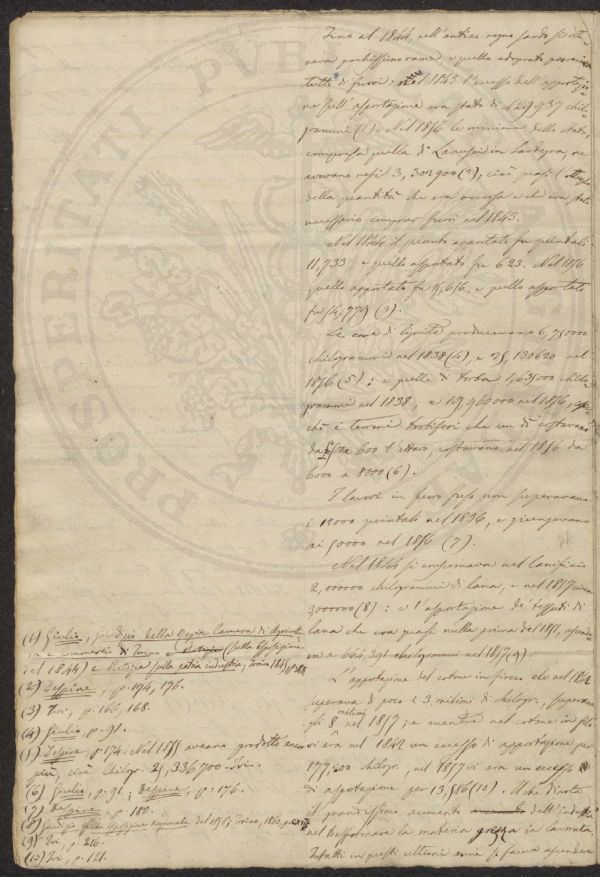 Fino al 1844 nell'antico regno sardo si otte-
neva pochissimo rame, e quello adoprato proveniva
tutto di fuori: nel 1843 l'eccesso dell'apportazio-
ne sull'asportazione era stato di 429937 chilo-
grammi (1). Nel 1856 le miniere dello Stato,
compresa quella di in Sardegna, ne
avevano resi 3,302900 (2), cioè quasi
della quantità che era occorsa e che era stato
necessario comprar fuori nel 1843.
Nel 1844 il piombo apportato fu quintali
11,733 e quello asportato fu 623. Nel 1856
quello apportato fu 15,656, e quello asportato
fu 54,779 (3).
Le cave di lignite producevano 6,750000
chilogrammi nel 1838 (4), e 25,130620 nel
1856 (5): e quelle di torba 1,635000 chilo-
grammi nel 1838, e 19,960000 nel 1856,
chè i terreni torbiferi che un dì costavano
da 500 a 600 l'ettaro, costavano nel 1856 da
6000 a 8000 (6).
I lavori in ferro fuso non superavano
i 12000 quintali nel 1836, e giungevano
ai 50000 nel 1856 (7).
Nel 1844 si consumava nel lanificio
2,000000 chilogrammi di lana, e nel 1857 circa
3000000 (8): e l'asportazione de' tessuti di
lana che era quasi nulla prima del 1851, ascende-
va a 664,391 chilogrammi nel 1857 (9).
L'apportazione del cotone in fiocco che nel 1842
superava di poco i 3 milioni di chilogr., superava
gli 8 milioni nel 1857; e mentre nel cotone in filo
vi era nel 1842 un eccesso di apportazione per
177,200 chilogr., nel 1857 vi era un eccesso
di asportazione per 13,586 (10). Il che dinota
il grandissimo aumento dell'industria
nel trasformare la materia grezza in lavorata.
Infatti in questi ultimi anni si faceva ascendere
(1) Giulio, Giudizio della Regia Camera di Agricolt-
ra e Commercio di Torino e Notizie (sulla Esposizione
del 1844) e Notizie sulla patria industria, Torino 1845,
(2) Despine, p. 174, 176.
(3) Ivi, p. 166, 168.
(4) Giulio, p. 91.
(5) Despine, p. 174. Nel 1855 aveano prodotto ancor
più, cioè chilogr. 25,336,700. Ivi.
(6) Giulio, p. 91; Despine, p. 176.
(7) Despine, p. 180.
(8) Giudizio sulla Esposizione nazionale del 1858, Torino, 1860, p.
(9) Ivi, p. 216.
(10) Ivi, p. 121.
PROSPERITATI PVBLICAE